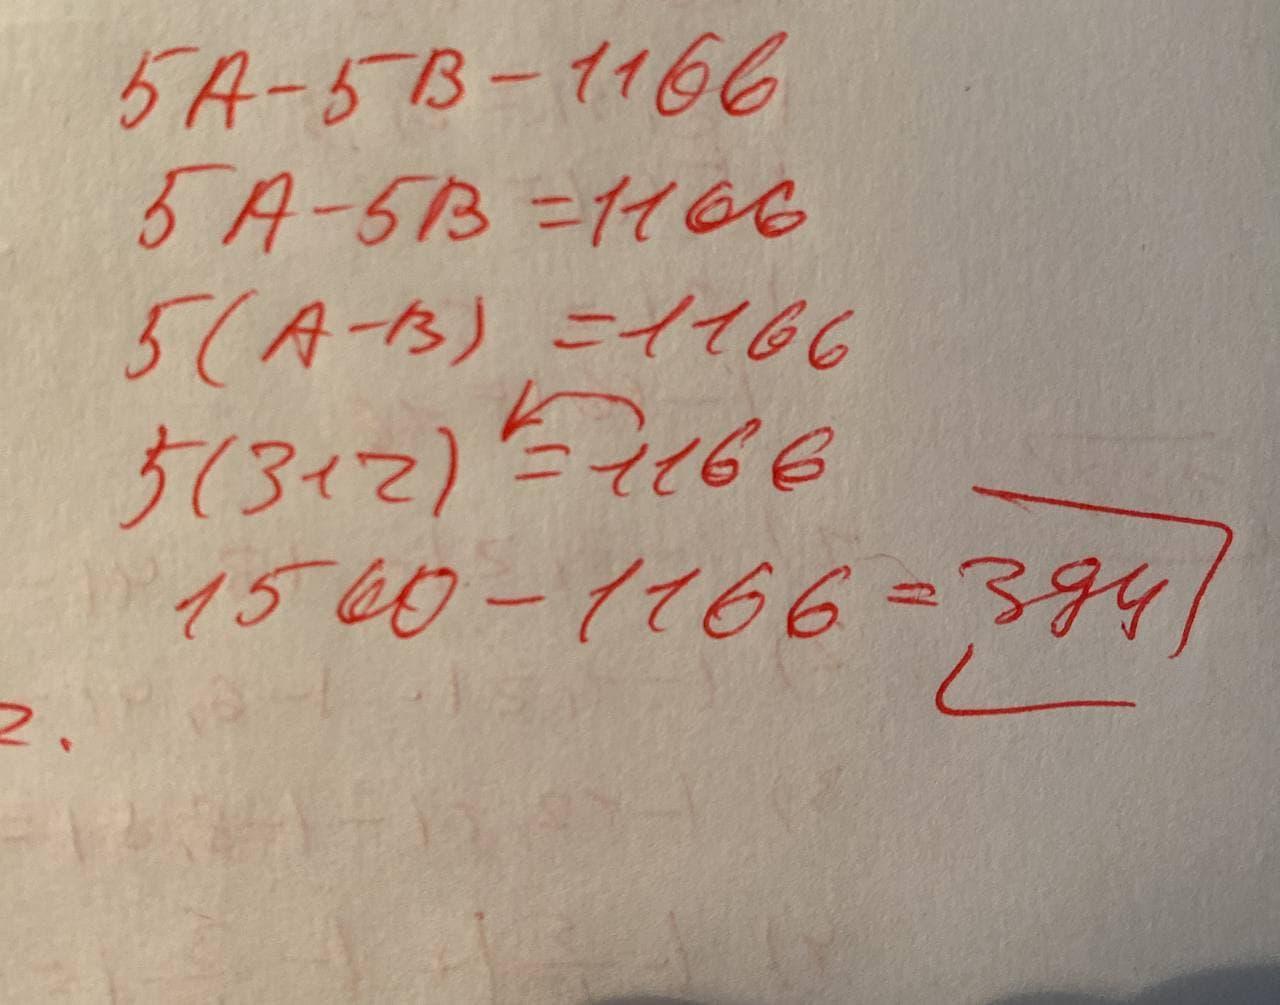 5A-5B-1166
5A-5B=1166
5(A-B)=1166
5(312)=1166
1560-1166=394
2.